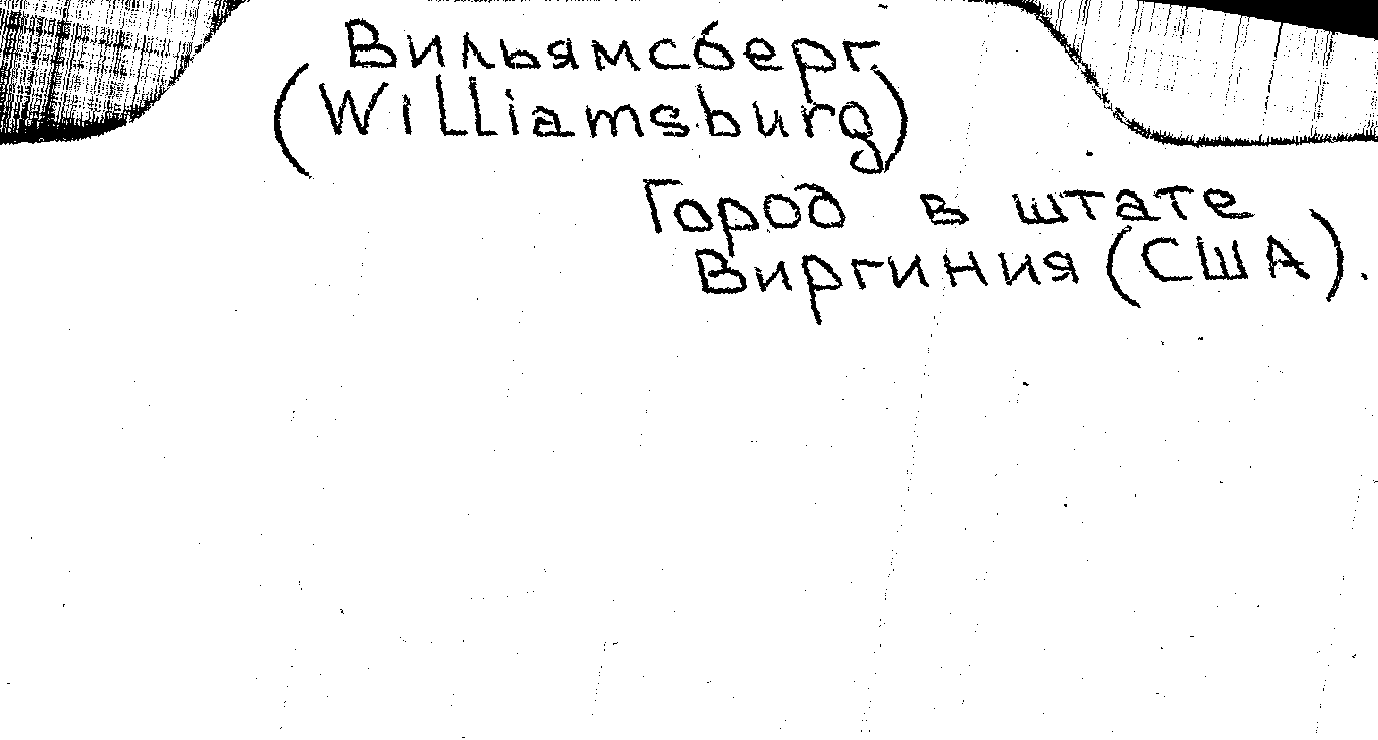 Вильямсберг
(Williamsburg)
Город в штате
Виргиния (США).